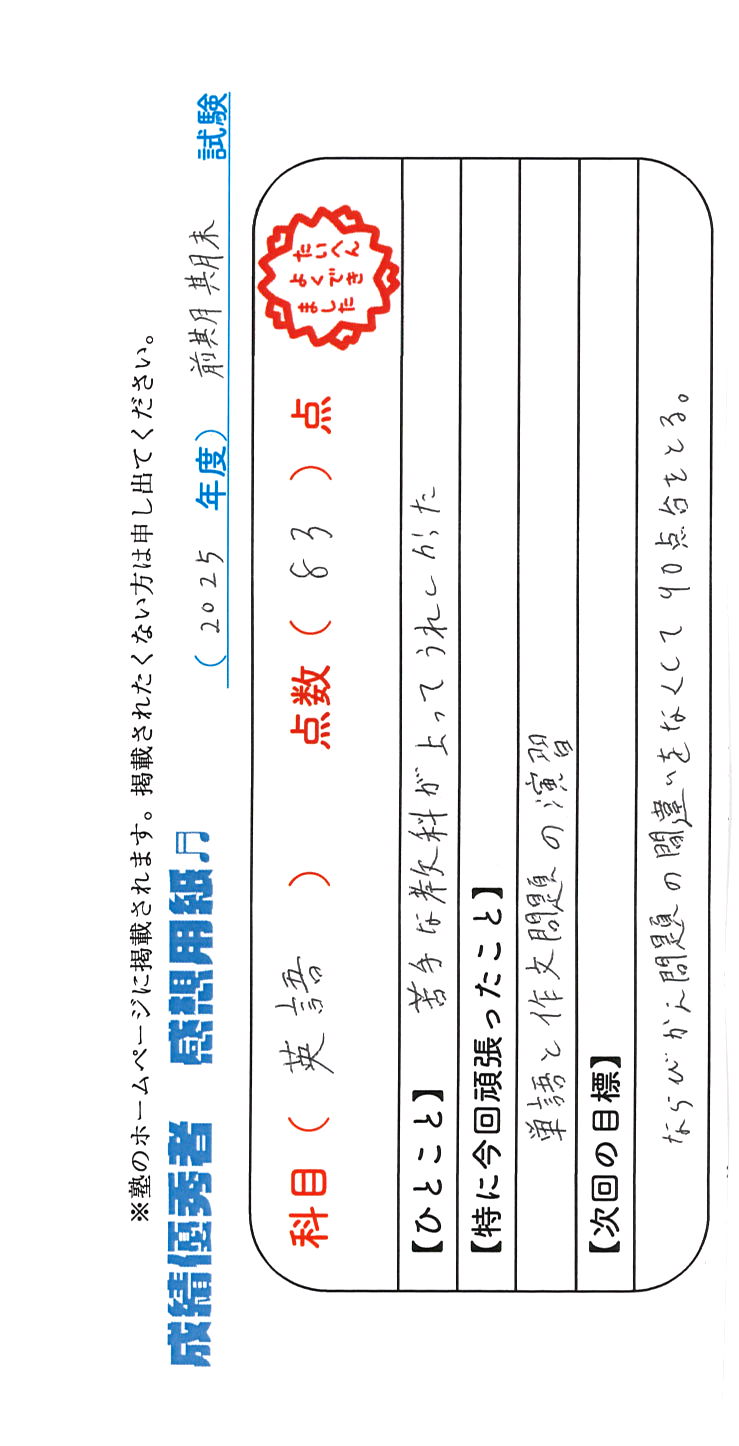 ※塾のホームページに掲載されます。掲載されたくない方は申し出てください。
成績優秀者 感想用紙♬
(2025 年度) 前期 期末 試験
科目(英語) 点数(83)点
たいへん
よくでき
ました
【ひとこと】 苦手な教科が上ってうれしかった
【特に今回頑張ったこと】
単語と作文問題の演習
【次回の目標】
ならびかえ問題の間違いをなくして90点台をとる。